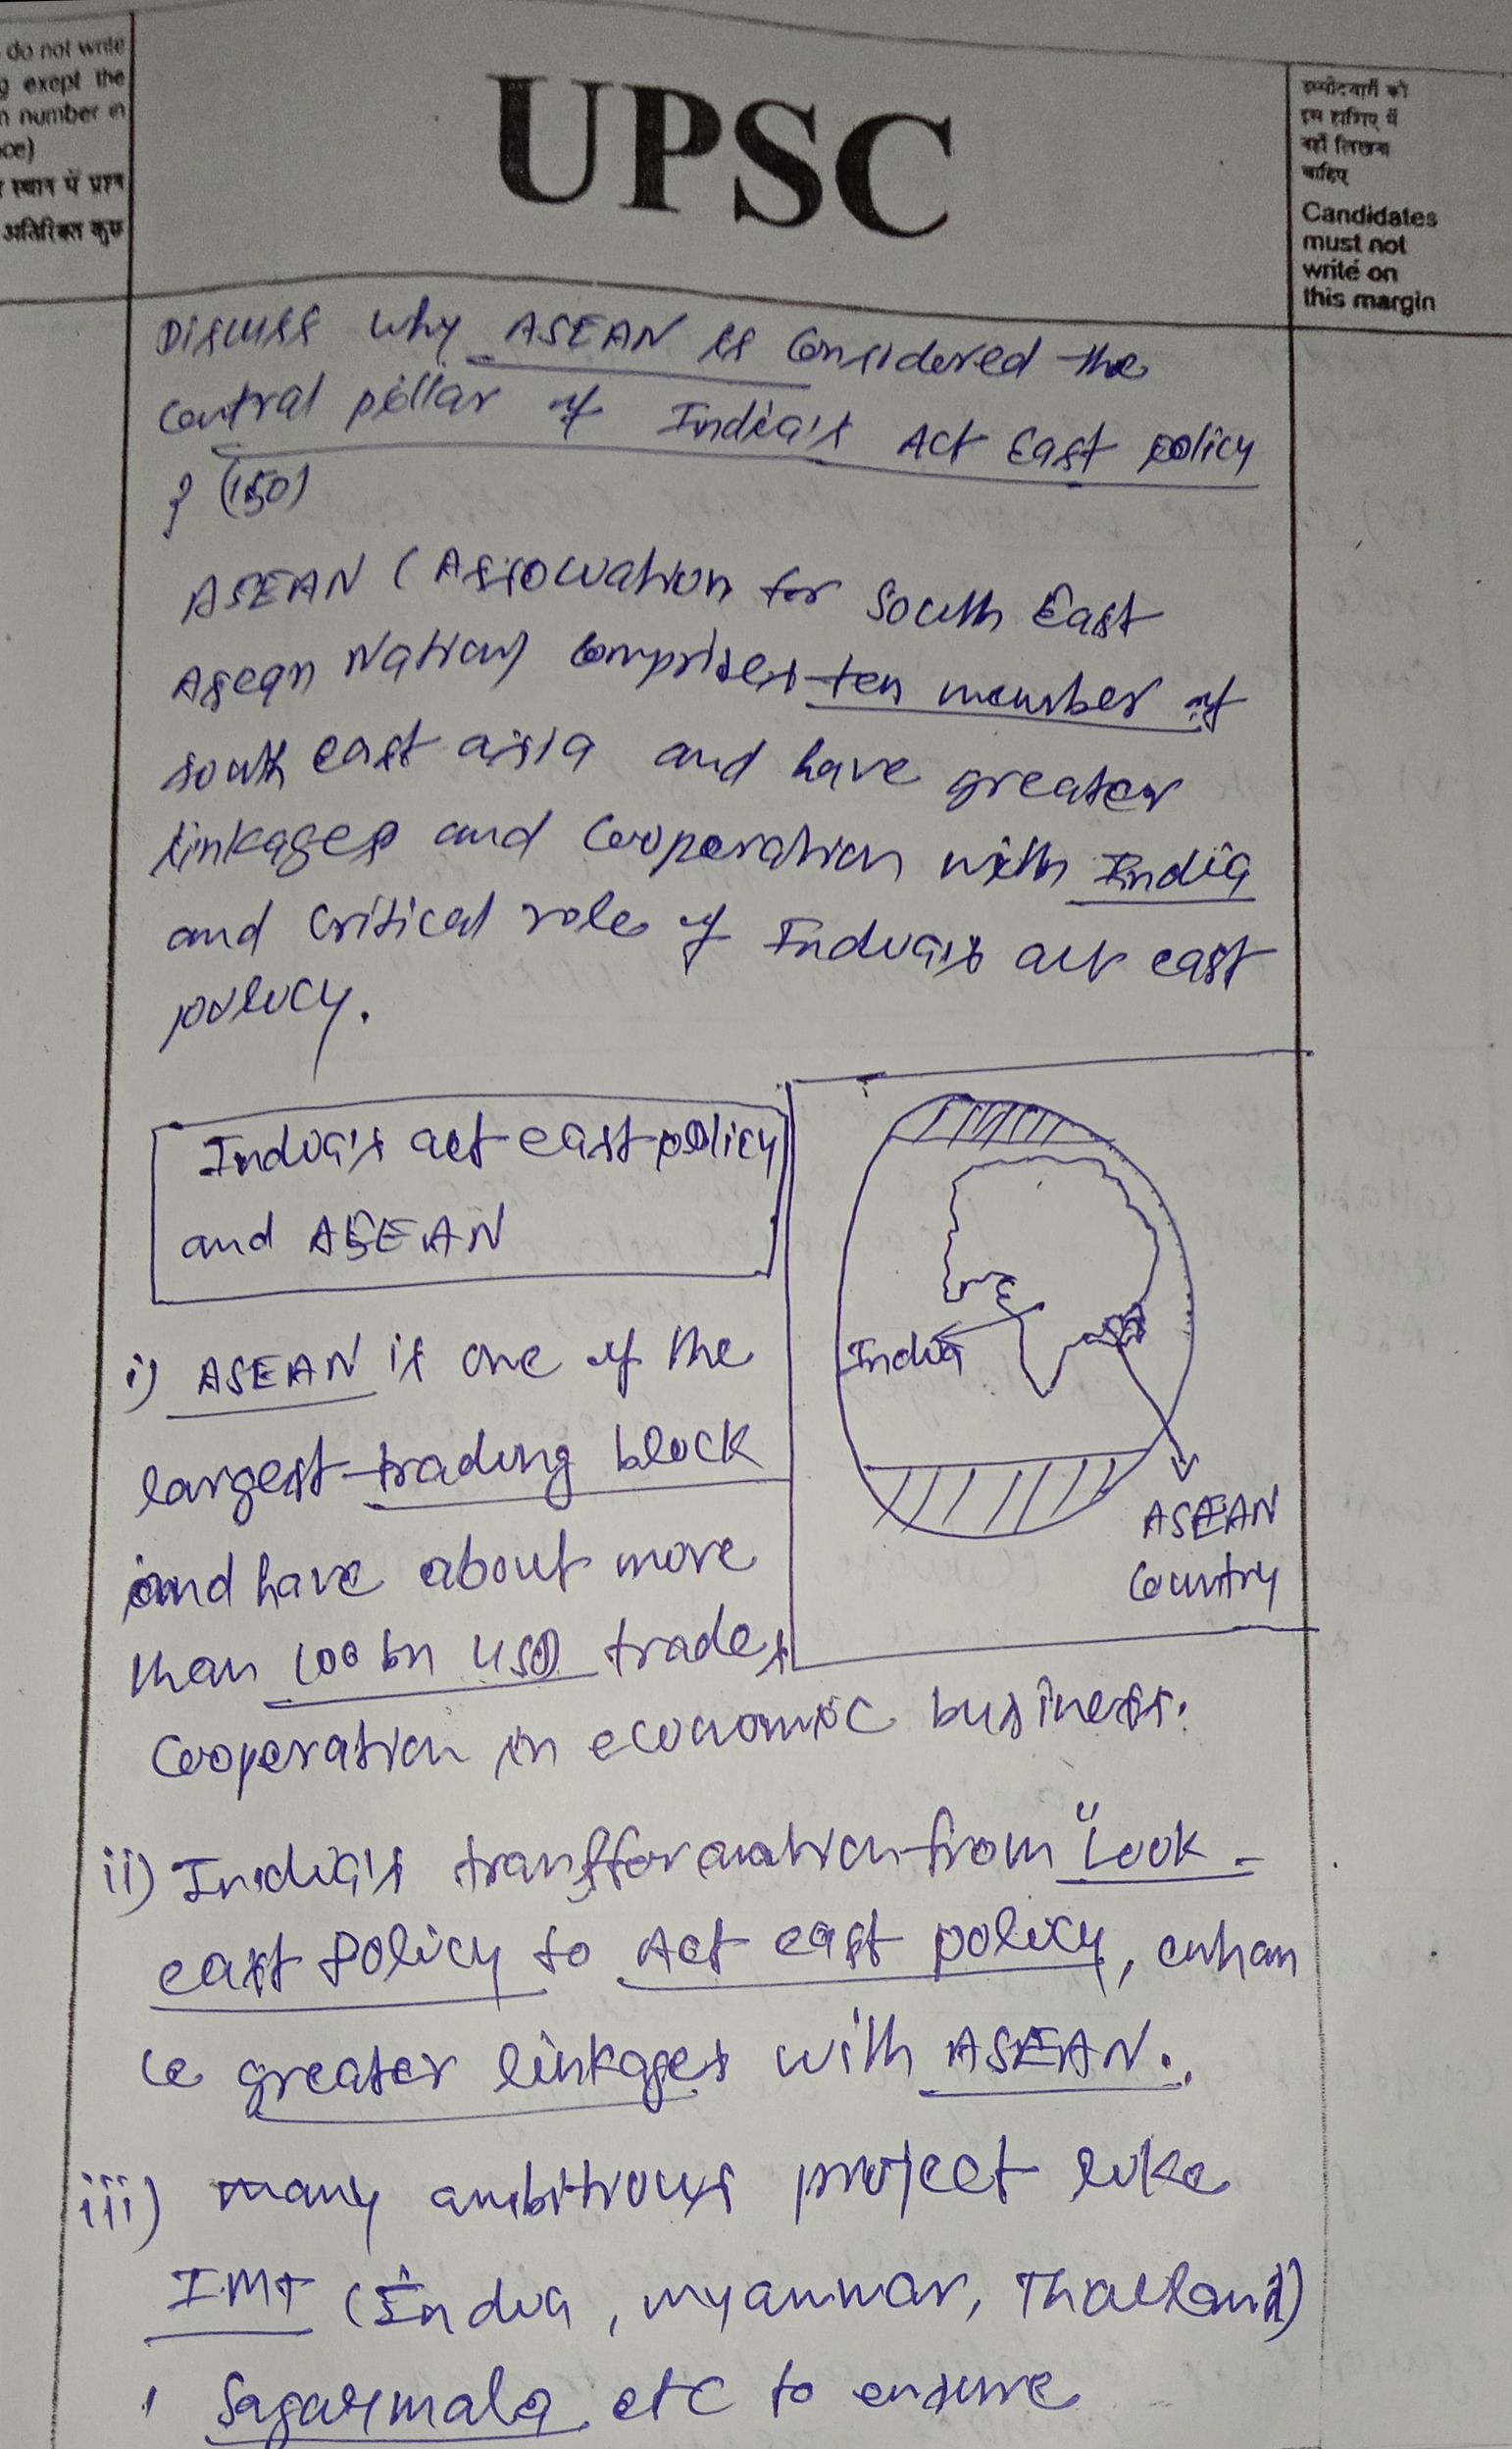 do not write
g exept the
n number in
ce)
स्थान में प्रश्न
अतिरिक्त कुछ
UPSC
उम्मीदवारों को
इस हाशिए में
नहीं लिखना
चाहिए
Candidates
must not
write on
this margin
Discuss why ASEAN is Considered the
Central pillar of India's Act East policy
? (150)
ASEAN (Association for South East
Asean Nation) comprises ten member of
south east asia and have greater
linkages and Cooperation with India
and critical role of India's act east
policy.
India's act east policy
and ASEAN
India
ASEAN
Country
i) ASEAN is one of the
largest trading block
and have about more
than 100 bn USD trade,
Cooperation in economic business.
ii) India's transformation from "Look-
east Policy to Act east policy, enhan
ce greater linkages with ASEAN.
iii) many ambitious project like
IMT (India, myanmar, Thailand)
, Sagarmala etc to ensure